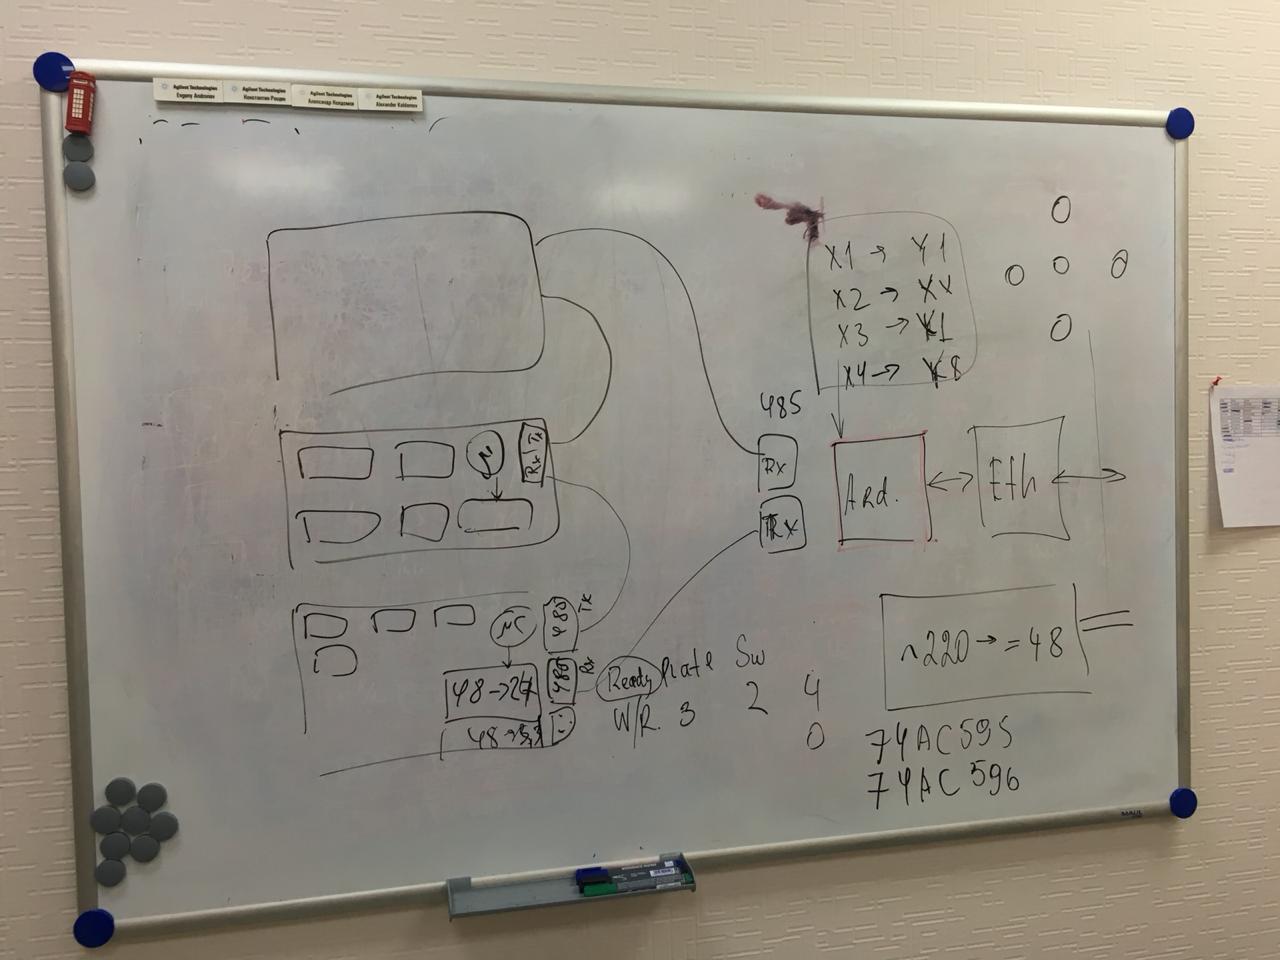 Agilent Technologies
Evgeny Andronov
Agilent Technologies
Константин Рощин
Agilent Technologies
Agilent Technologies
Alexander Koldomov
X1 → Y1
X2 →
X3 → 1
X4 → 8
485
Rx
Rx
Ard.
Eth
Rx Tx
μ
μC
485 Tx
485 Rx
48→24
48→3,3
Ready
Rate Sw
W/R. 3 2 4
0
~220 → = 48
74AC595
74AC596
MAUL